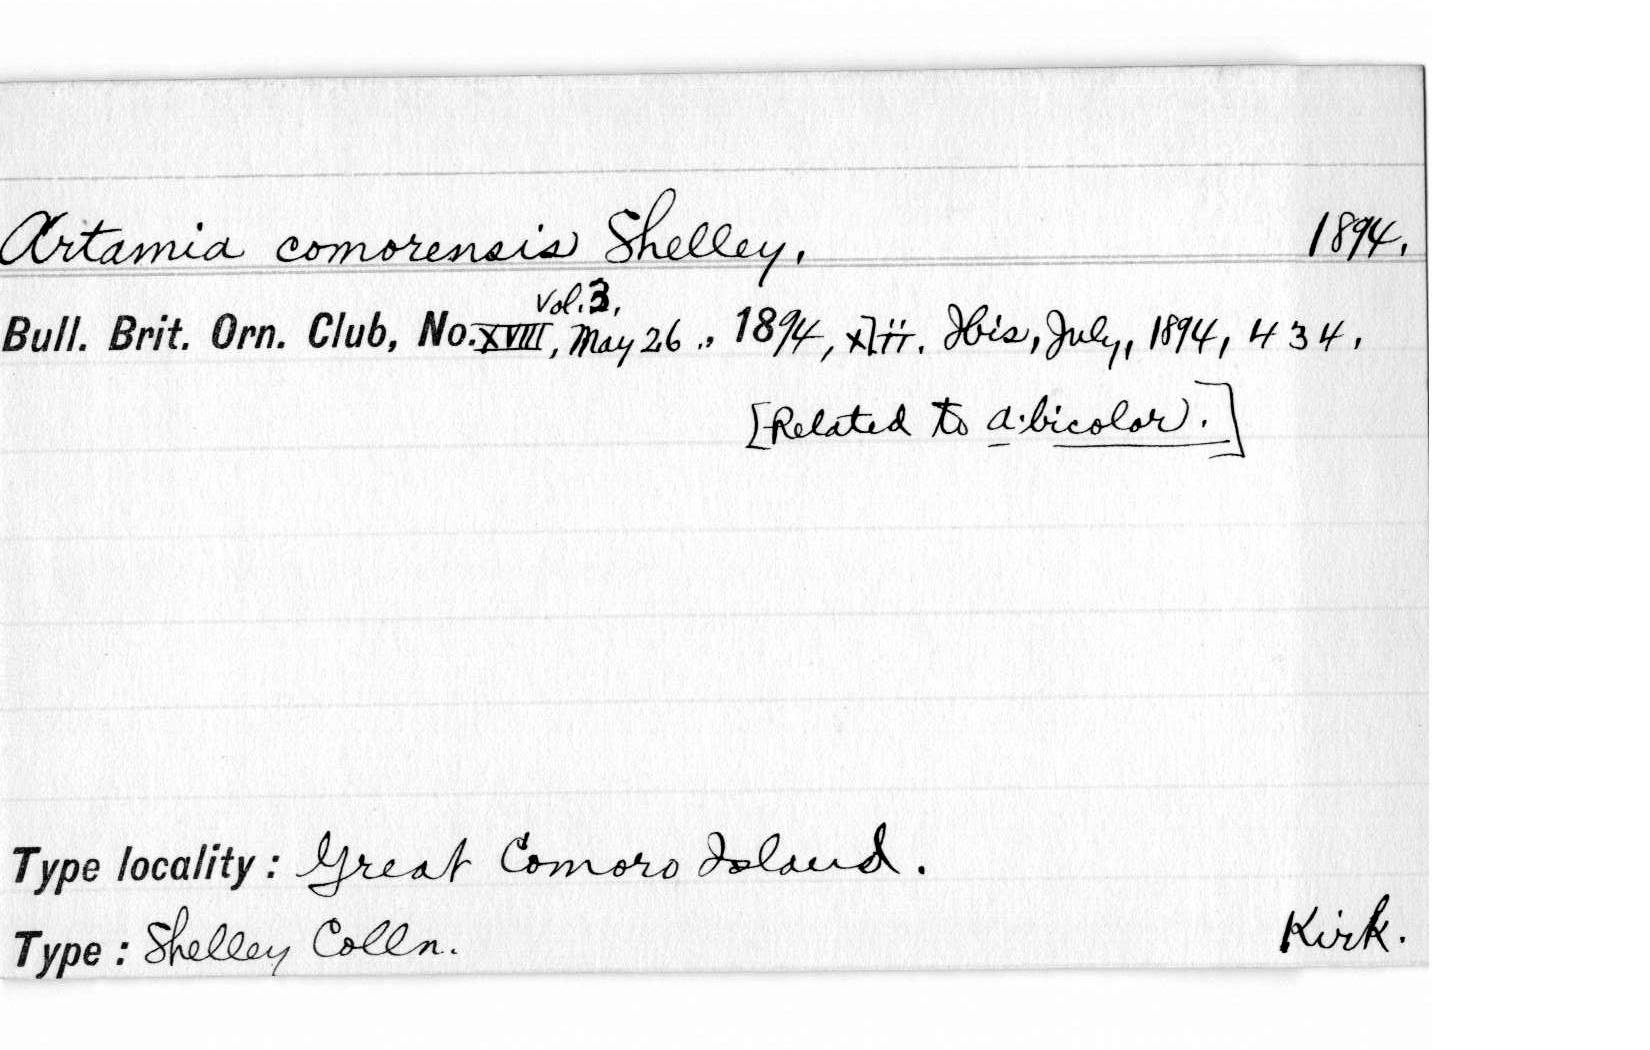 Artamia comorensis Shelley. 1894.
Vol. 3,
Bull. Brit. Orn. Club, No. XVIII, May 26., 1894, xlii. Ibis, July, 1894, 434.
[Related to a. bicolor.]
Type locality: Great Comoro Island.
Type: Shelley Colln. Kirk.